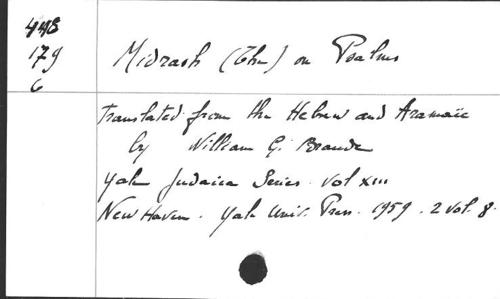 448
179
6
Midrash (The) on Psalms
Translated from the Hebrew and Aramaic
by William G. Braude
Yale Judaica Series. Vol XIII
New Haven. Yale Univ. Press. 1959. 2 vol. 8.